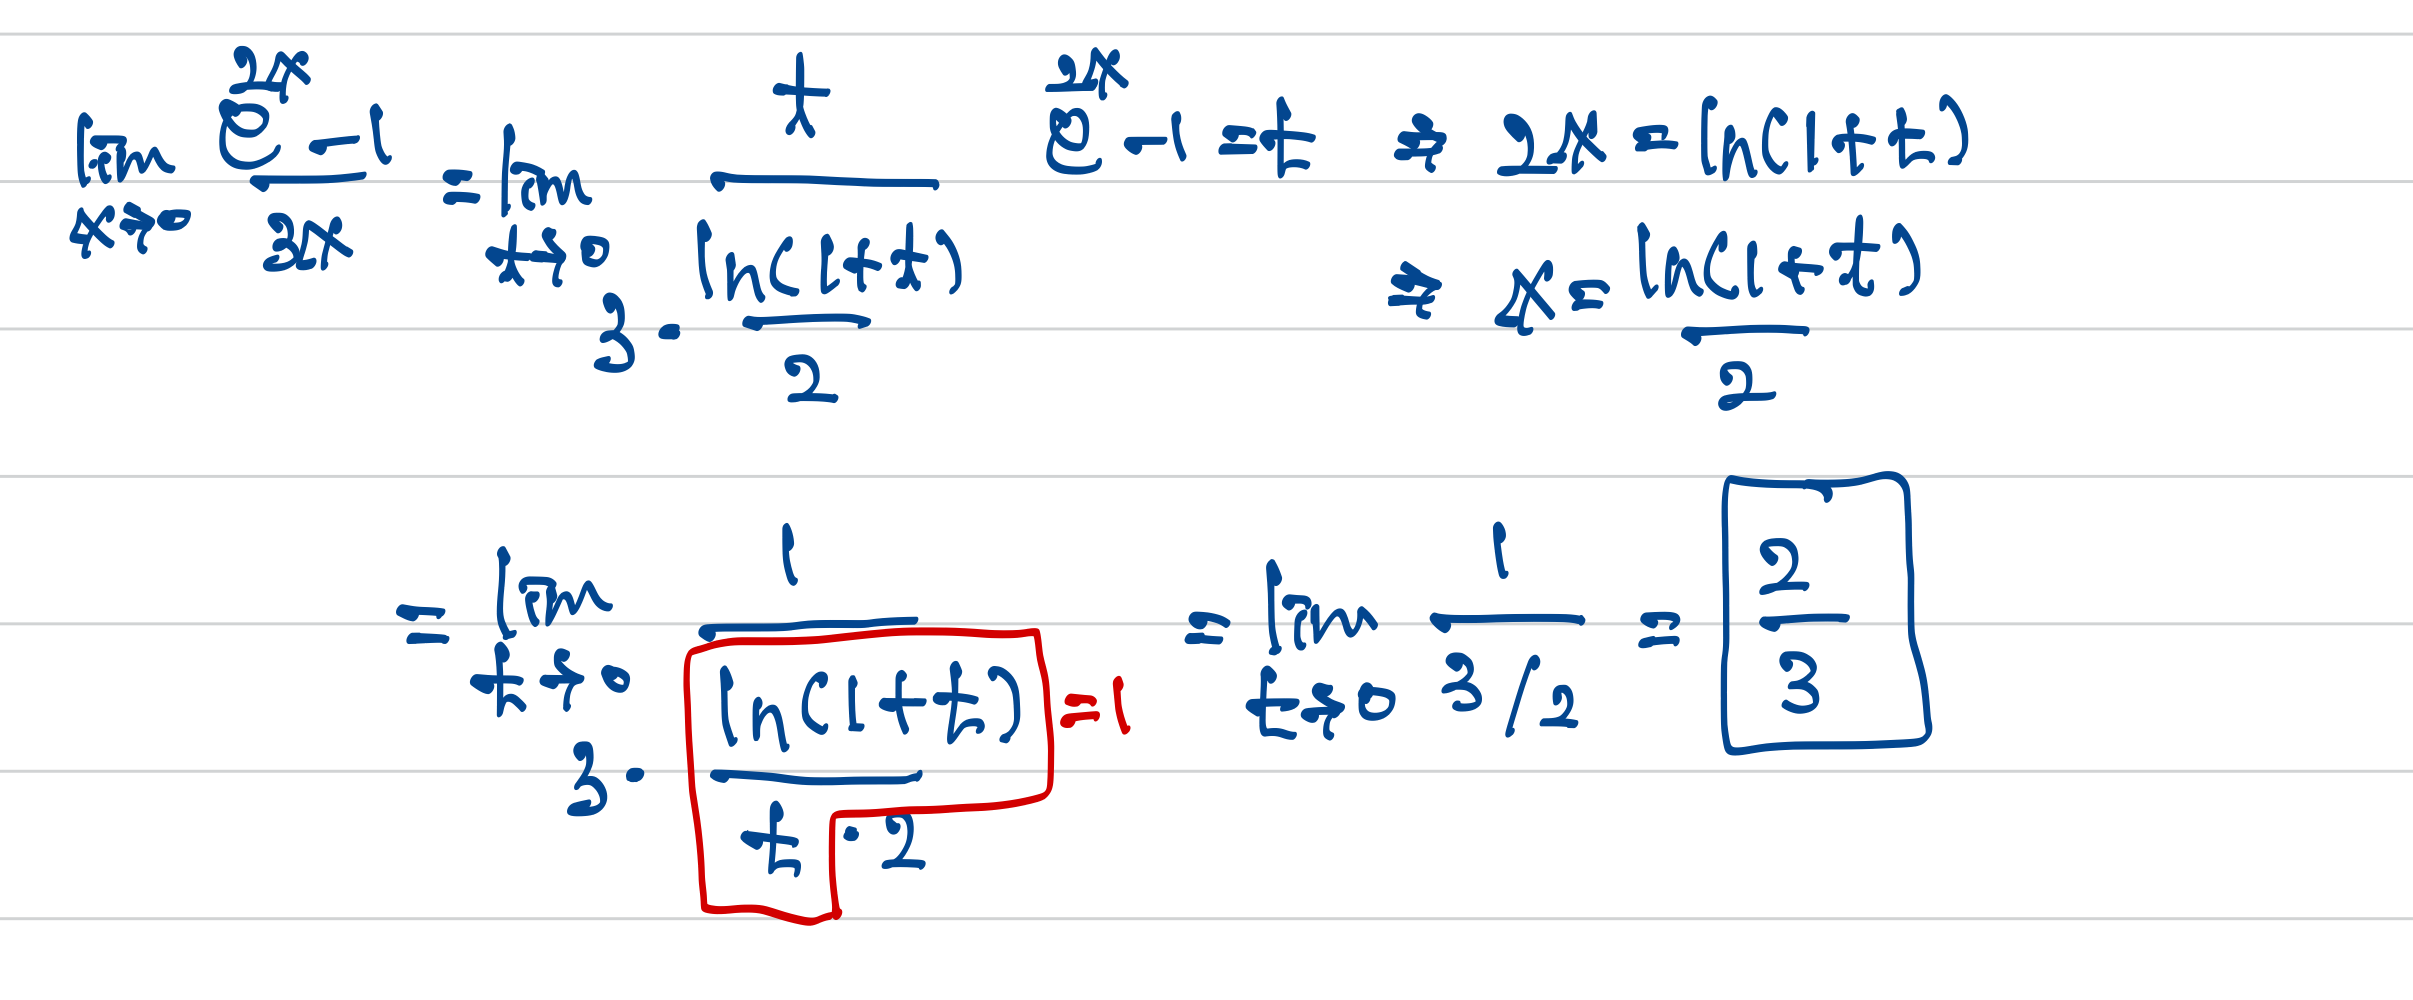 lim x→0 (e^{2x} − 1)/(3x) = lim t→0 t/(3 · ln(1+t)/2)   e^{2x} − 1 = t ⇒ 2x = ln(1+t)
⇒ x = ln(1+t)/2
= lim t→0 1/(3 · ln(1+t)/(t · 2)) = 1 = lim t→0 1/(3/2) = 2/3